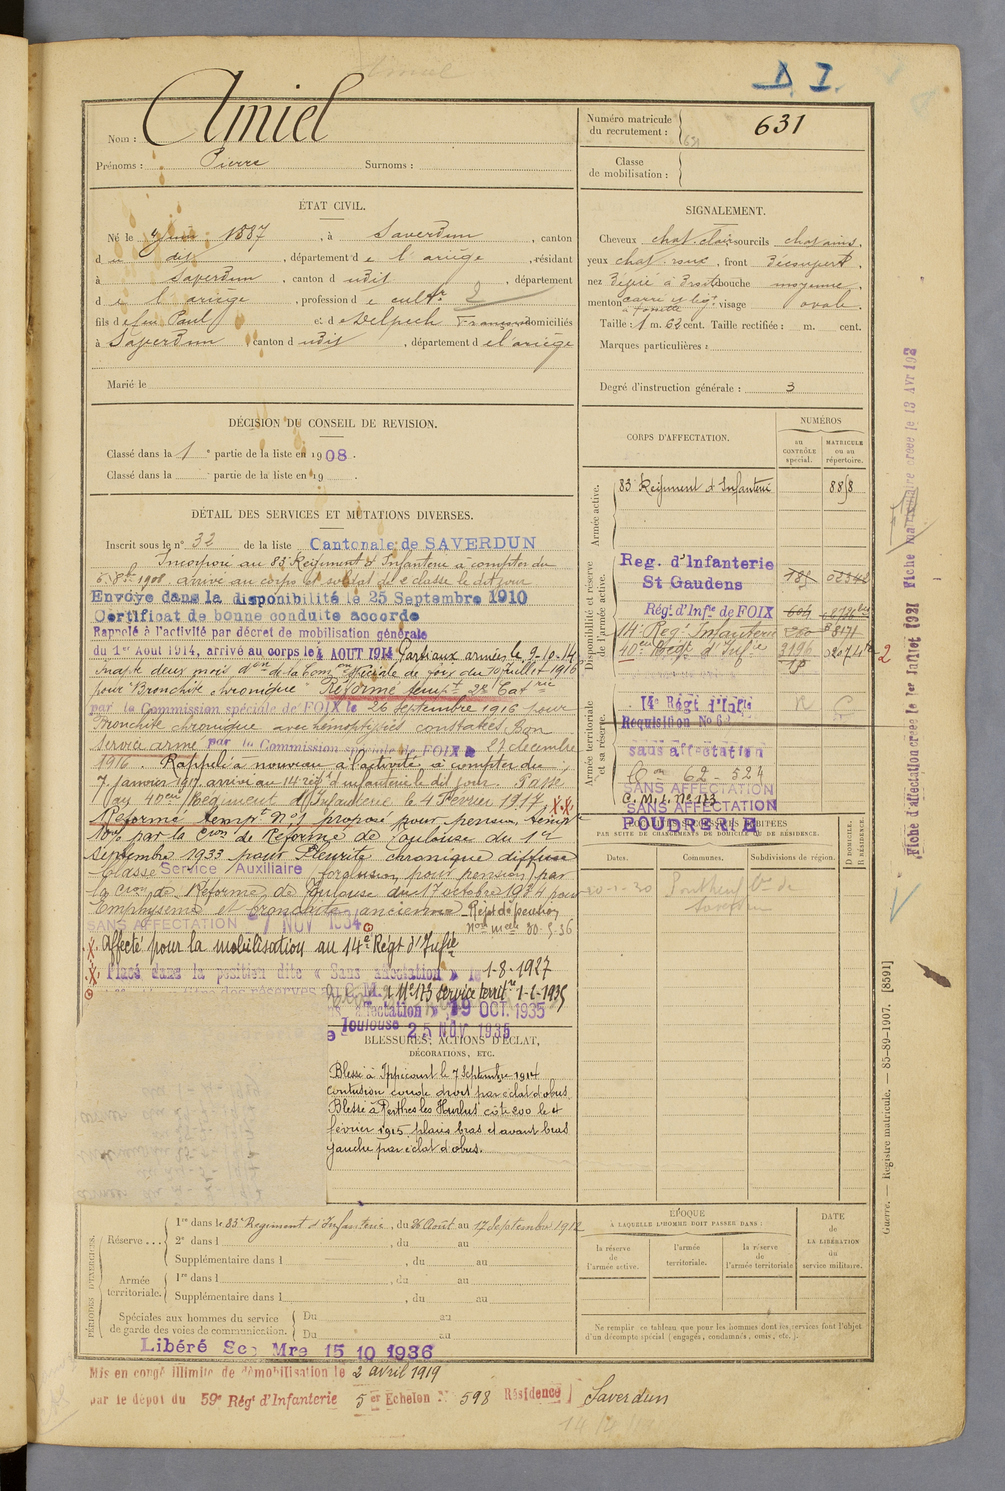 D. I.
Nom : Amiel
Prénoms : Pierre Surnoms :
Numéro matricule du recrutement : 631
Classe de mobilisation :
ÉTAT CIVIL.
Né le 1887, à Saverdun, canton
du dit, département de l'ariège, résidant
à Saverdun, canton d udit, département
de l'ariège, profession de cultr 2
fils de feu Paul et de Delpech domiciliés
à Saverdun, canton d udit, département de l'ariège
Marié le
SIGNALEMENT.
Cheveux chat. clair sourcils chatains,
yeux chat. roux, front découvert,
nez bouche moyenne,
menton visage ovale.
Taille : 1 m. 62 cent. Taille rectifiée : m. cent.
Marques particulières :
Degré d'instruction générale : 3
DÉCISION DU CONSEIL DE REVISION.
Classé dans la 1e partie de la liste en 1908.
Classé dans la partie de la liste en 19 .
DÉTAIL DES SERVICES ET MUTATIONS DIVERSES.
Inscrit sous le n° 32 de la liste Cantonale de SAVERDUN
Incorporé au 83e Régiment d'Infanterie à compter du
8bre 1908. arrivé au corps et soldat de 2e classe le dit jour
Envoyé dans la disponibilité le 25 Septembre 1910
Certificat de bonne conduite accordé
Rappelé à l'activité par décret de mobilisation générale
du 1er Aout 1914, arrivé au corps le 4 AOUT 1914 Parti aux armées le 9-10-14
Inapte deux mois don de la Comon spéciale de Foix du 10 Juillet 1916
pour Bronchite chronique Réformé tempre 2e Catrie
par la Commission spéciale de FOIX le 26 Septembre 1916 pour
Bronchite chronique avec hémoptysies constatées. Bon
service armé par la Commission spéciale de FOIX le 27 décembre
1916. Rappelé à nouveau à l'activité à compter du
7 Janvier 1917. arrivé au 14e régt d'infanterie le dit jour. Passé
au 40eme Régiment d'Infanterie le 4 Février 1917.
Réformé tempre N°1 proposé pour pension tempre
10% par la Cion de Réforme de Toulouse du 1er
Septembre 1933 pour Pleurite chronique diffuse
Classé Service Auxiliaire forclusion pour pension par
la Cion de Réforme de Toulouse du 17 octobre 1934 pour
Emphysème et bronchite ancienne. Rejet de pension
SANS AFFECTATION 7 NOV 1934
Affecté pour la mobilisation au 14e Régt d'Infie
Placé dans la position dite « Sans affectation » le 1-8-1927
C. M. I. N°173 service territre 1-1-1935
affectation » 19 OCT. 1935
Toulouse 25 NOV 1935
BLESSURES, ACTIONS D'ÉCLAT,
DÉCORATIONS, ETC.
Blessé à Ippécourt le 7 Septembre 1914
contusion coude droit par éclat d'obus
Blessé à Perthes les Hurlus côte 200 le 4
février 1915 plaies bras et avant bras
gauche par éclat d'obus.
CORPS D'AFFECTATION.
NUMÉROS
AU CONTRÔLE spécial.
MATRICULE OU AU répertoire.
Armée active.
83e Régiment d'Infanterie 8858
Disponibilité et réserve de l'armée active.
Reg. d'Infanterie
St Gaudens
Régt d'Infie de FOIX
14e Regt Infanterie 8171
40e Regt d'Infie
Armée territoriale et sa réserve.
14e Régt d'Infie
Requisition No 62
sans affectation
62-524
SANS AFFECTATION
C. M. I. No 173
SANS AFFECTATION
POUDRERIE
PAR SUITE DE CHANGEMENTS DE DOMICILE OU DE RÉSIDENCE.
Dates.
Communes.
Subdivisions de région.
D DOMICILE. R RÉSIDENCE.
Saverdun
PÉRIODES D'EXERCICES.
Réserve....
1re dans le 83e Regiment d'Infanterie, du 26 Août au 17 Septembre 1912
2e dans l , du au
Supplémentaire dans l , du au
Armée territoriale.
1re dans l , du au
Supplémentaire dans l , du au
Spéciales aux hommes du service de garde des voies de communication.
Du au
Du au
ÉPOQUE
À LAQUELLE L'HOMME DOIT PASSER DANS :
la réserve de l'armée active.
l'armée territoriale.
la réserve de l'armée territoriale
DATE de LA LIBÉRATION du service militaire.
Ne remplir ce tableau que pour les hommes dont les services font l'objet
d'un décompte spécial (engagés, condamnés, omis, etc.).
Libéré Sce Mre 15 10 1936
Mis en congé illimité de démobilisation le 2 avril 1919
par le dépot du 59e Régt d'Infanterie 5er Echelon N° 598 Résidence Saverdun
Guerre. — Registre matricule. — 85-89-1907. [8591]